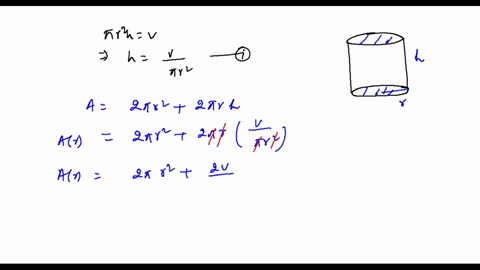 πr²h = v
⇒ h = v/πr² —— ①
A = 2πr² + 2πrh
A(r) = 2πr² + 2πr (v/πr²)
A(r) = 2πr² + 2v
h
r